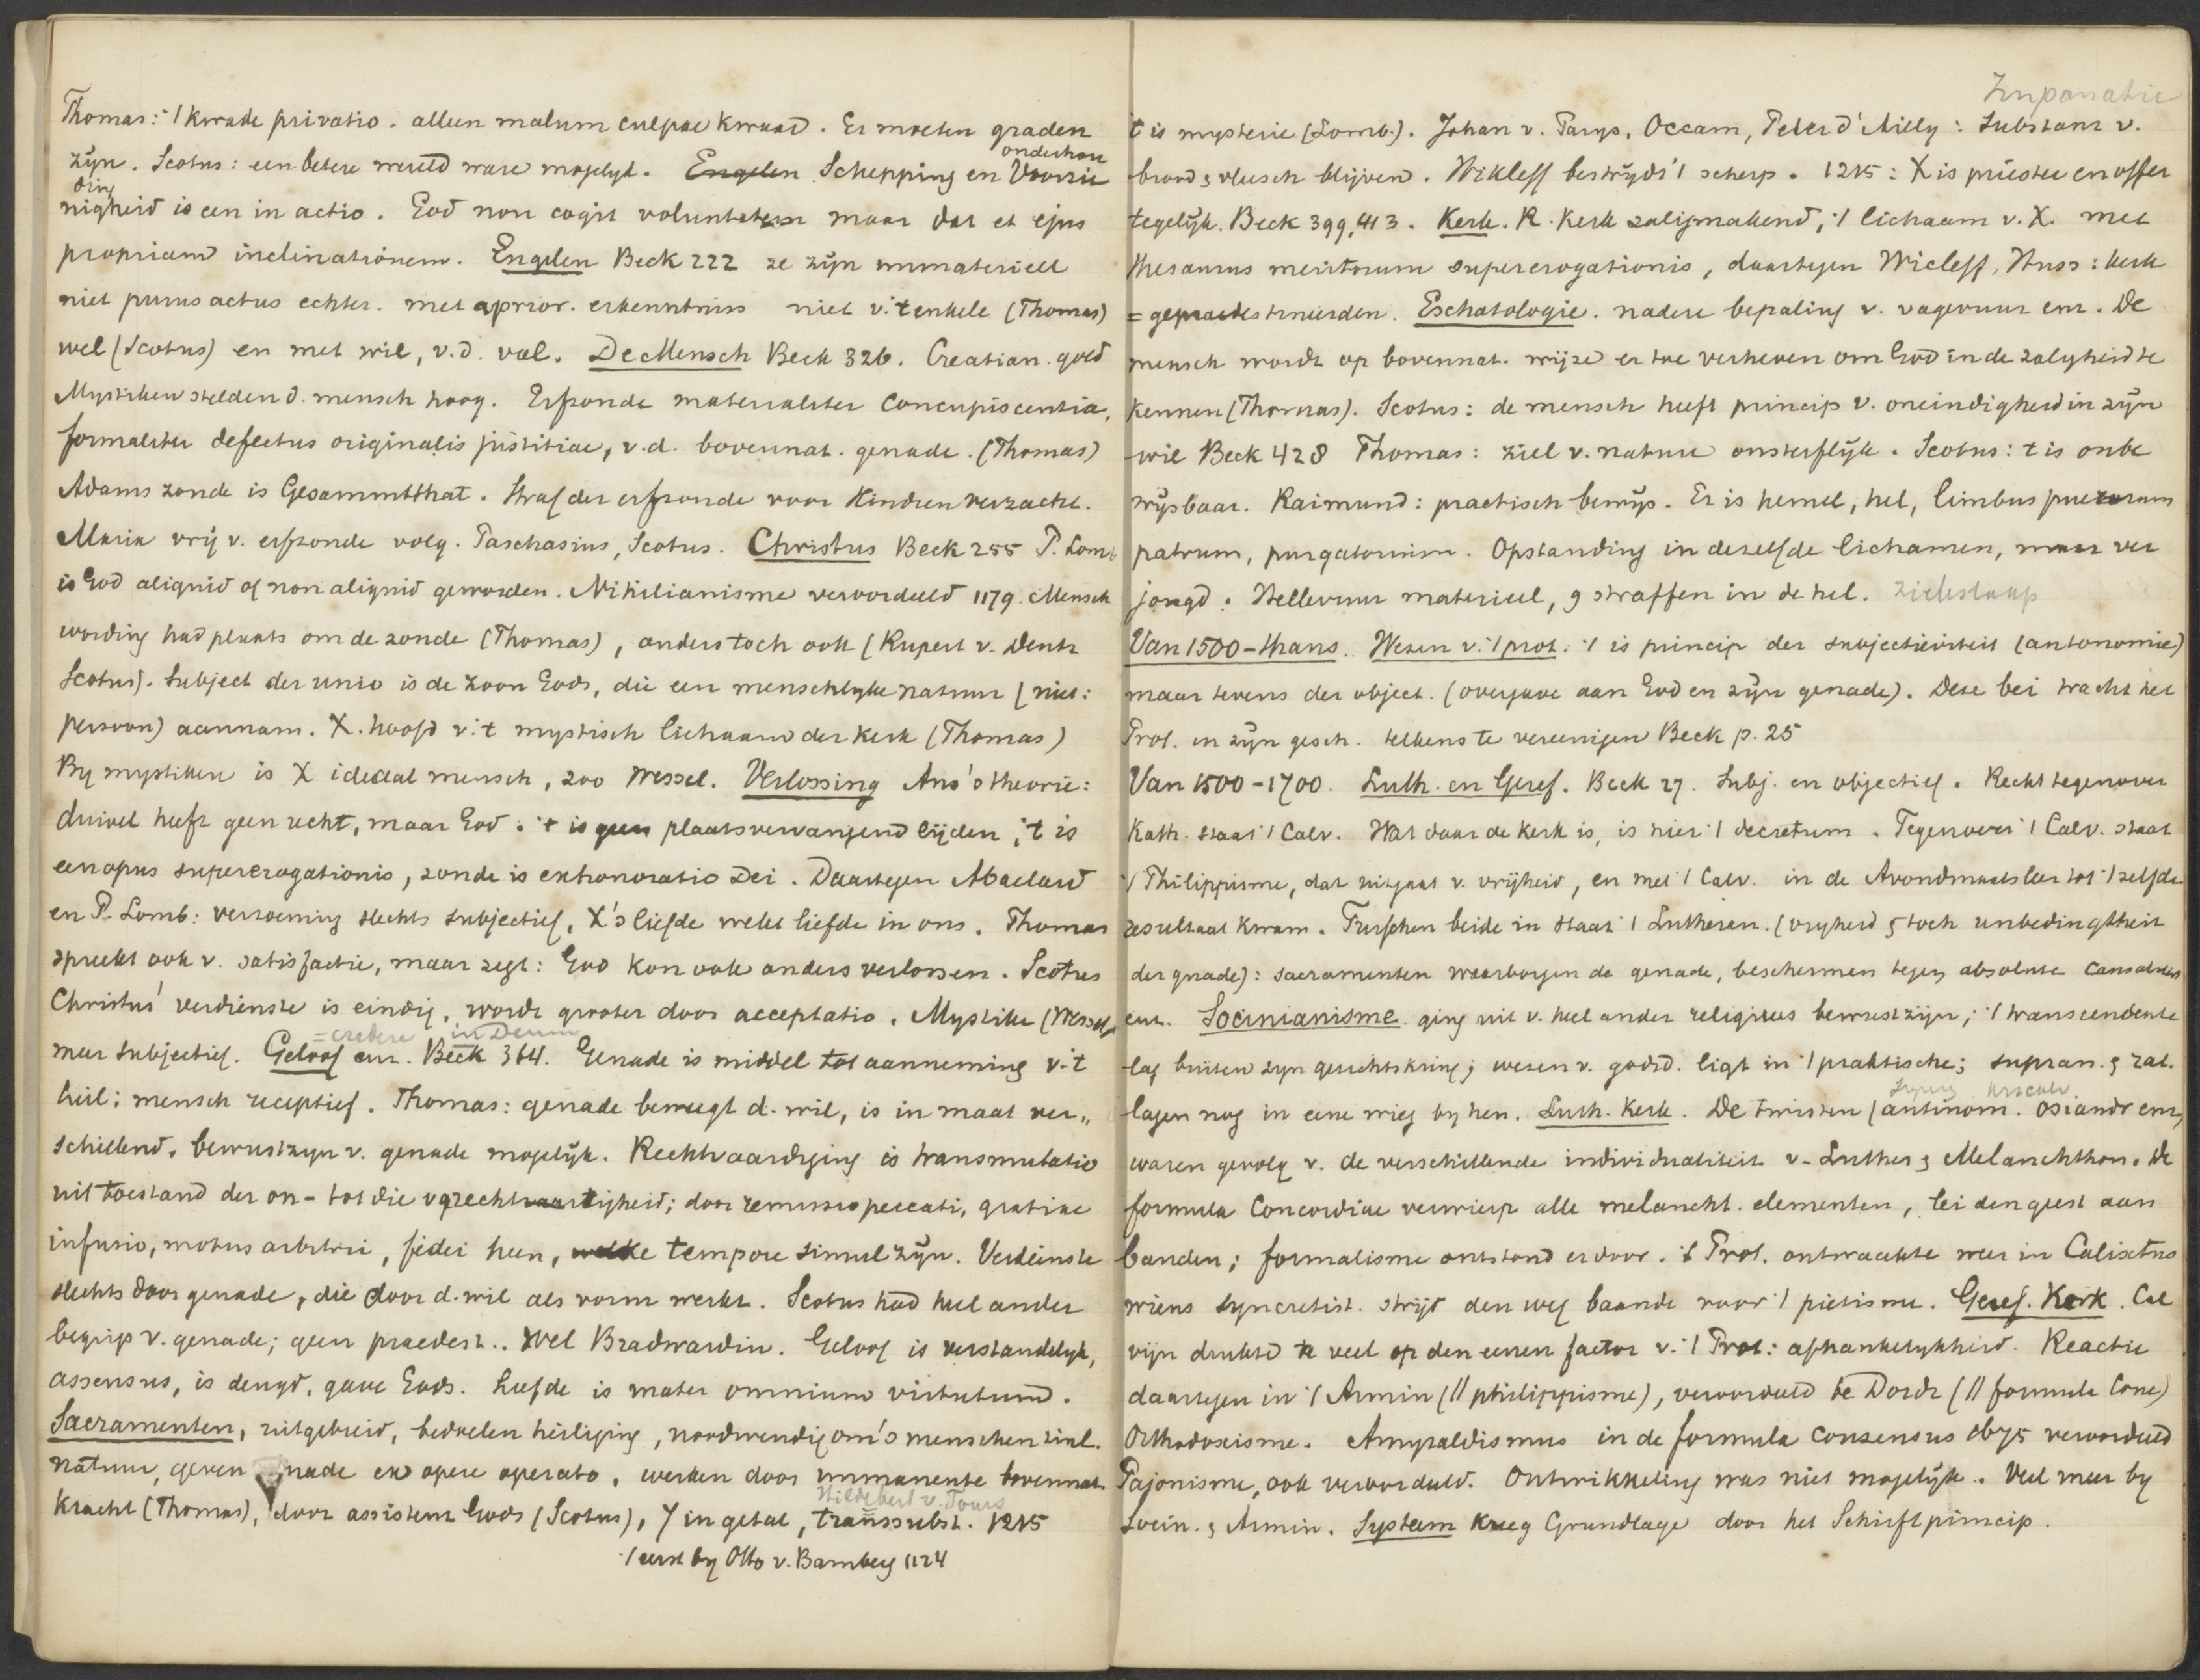 Thomas: 't kwade privatio. alleen malum culpae kwaad. Er moeten graden
zijn. Scotus: een betere wereld ware mogelijk. Engelen Schepping en Voorzie
onderhou
ding
nigheid is een in actio. God non cogit voluntatem maar dat et ejus
propriam inclinationem. Engelen Beck 222 ze zijn immaterieel
niet purus actus echter. met aprior. erkenntniss niet v. 't enkele (Thomas)
wel (Scotus) en met wil, v.d. val. De Mensch Beck 326. Creatian. goed
Mystieken stelden d. mensch hoog. Erfzonde materialiter concupiscentia,
formaliter defectus originalis justitiae, v.d. bovennat. genade. (Thomas)
Adams zonde is Gesammtthat. Straf der erfzonde voor kindren verzacht.
Maria vrij v. erfzonde volg. Paschasius, Scotus. Christus Beck 255 P. Lomb
is God aliquid of non aliquid geworden. Nihilianisme veroordeeld 1179. Mensch
wording had plaats om de zonde (Thomas), anders toch ook (Rupert v. Deutz
Scotus). Subject der unio is de zoon Gods, die een menschlijke natuur (niet:
persoon) aannam. X. hoofd v. 't mystisch lichaam der kerk (Thomas)
By mystieken is X ideaal mensch, zoo Wessel. Verlossing Ans's theorie:
duivel heeft geen recht, maar God. 't is geen plaatsvervangend lijden, 't is
een opus supererogationis, zonde is exhonoratio Dei. Daartegen Abaelard
en P. Lomb: verzoening slechts subjectief, X's liefde wekt liefde in ons. Thomas
spreekt ook v. satisfactie, maar zegt: God kon ook anders verlossen. Scotus
Christus' verdienste is eindig, wordt grooter door acceptatio. Mystiek (Wessel)
= credere in Deum
meer subjectief. Geloof enz. Beck 364. Genade is middel tot aanneming v. 't
heil; mensch receptief. Thomas: genade beweegt d. wil, is in maat ver-
schillend, bewustzijn v. genade mogelijk. Rechtvaardiging is transmutatio
uit toestand der on- tot die v gerechtvaartigheid; door remissio peccati, gratiae
infusio, motus arbitrii, fidei heen, welke tempore simul zijn. Verdienste
slechts door genade, die door d. wil als vorm werkt. Scotus had heel ander
begrip v. genade; geen praedest.. Wel Bradwardin. Geloof is verstandelijk,
assensus, is deugd, gave Gods. Liefde is mater omnium virtutum.
Sacramenten, uitgebreid, bedoelen heiliging, noodwendig om 's menschen zinl.
natuur, geven genade ex opere operato, werken door immanente bovennat.
Hildebert v. Tours
kracht (Thomas), door assistent. Gods (Scotus), 7 in getal, transsubst. 1215
't eerst by Otto v. Bamberg 1124
Impanatie
't is mysterie (Lomb.). Johan v. Parys, Occam, Peter d'Ailly: Substanz v.
brood & vleesch blijven. Wikleff bestrijdt 't scherp. 1215: X is priester en offer
tegelijk. Beck 399, 413. Kerk. R. Kerk zaligmakend, 't lichaam v. X. met
thesaurus meritorum supererogationis, daartegen Wicleff, Huss: kerk
= gepraedestineerden. Eschatologie. nadere bepaling v. vagevuur enz. De
mensch wordt op bovennat. wijze er toe verheven om God in de zaligheid te
kennen (Thomas). Scotus: de mensch heeft princip v. oneindigheid in zijn
wil Beck 428 Thomas: ziel v. nature onsterflijk. Scotus: 't is onbe
wijsbaar. Raimund: practisch bewijs. Er is hemel, hel, limbus puerorum
patrum, purgatorium. Opstanding in dezelfde lichamen, maar ver
jongd: Hellevuur materieel, 9 straffen in de hel. zieleslaap
Van 1500 - thans. Wezen v. 't prot. 't is princip der subjectiviteit (autonomie)
maar tevens der object. (overgave aan God en zijn genade). Deze bei tracht het
Prot. in zijn gesch. telkens te vereenigen Beck p. 25
Van 1500-1700. Luth. en Geref. Beck 27. Subj. en objectief. Recht tegenover
Kath. staat 't Calv. Wat daar de kerk is, is hier 't decretum. Tegenover 't Calv. staat
't Philippisme, dat uitgaat v. vrijheid, en met 't Calv. in de Avondmaalsleer tot 't zelfde
resultaat kwam. Tusschen beide in staat 't Lutheran. (vrijheid & toch unbedingtheit
der gnade): sacramenten waarborgen de genade, beschermen tegen absolute causaliteit
enz. Socinianisme ging uit v. heel ander religieus bewustzijn; 't transcendente
lag buiten zijn gezichtskring; wezen v. godsd. ligt in 't praktische; supran. & rat.
lagen nog in eene wieg by hen. Luth. Kerk. De twisten (antinom. osiandr enz,
waren gevolg v. de verschillende individualiteit v. Luther & Melanchthon. De
formula Concordiae verwierp alle melancht. elementen, lei den geest aan
banden; formalisme ontstond erdoor. 't Prot. ontwaakte weer in Calixtus
wiens syncretist. strijd den weg baande voor 't pietisme. Geref. Kerk. Cal
vijn drukte te veel op den eenen factor v. 't Prot: afhankelykheid. Reactie
daartegen in 't Armin (// philippisme), veroordeeld te Dordt (// formula Conc)
Orthodoxisme. Amyraldismus in de formula consensus 1675 veroordeeld
Pajonisme, ook veroordeeld. Ontwikkeling was niet mogelijk. Veel meer by
Socin. & Armin. Systeem kreeg Grundlage door het Schriftprincip.